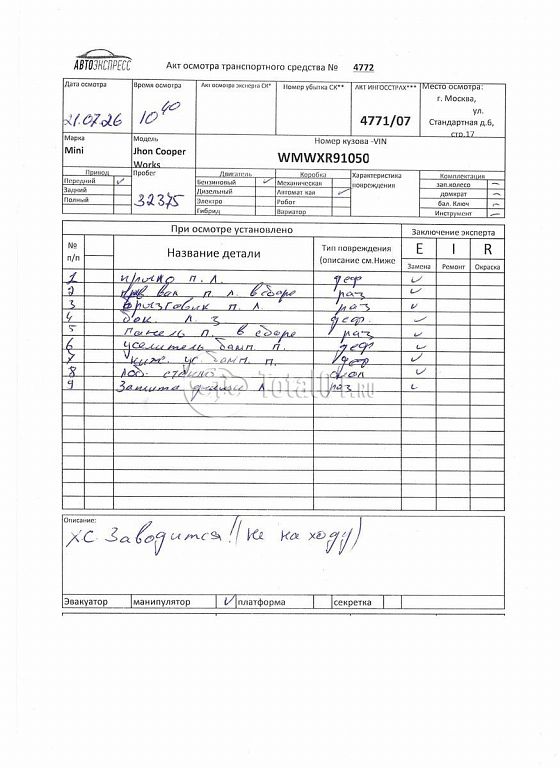 АВТОЭКСПРЕСС
Акт осмотра транспортного средства № 4772
Дата осмотра
Время осмотра
Акт осмотра эксперта СК*
Номер убытка СК**
АКТ ИНГОССТРАХ***
Место осмотра:
г. Москва,
ул.
Стандартная д.6,
стр.17
21.07.26
10 40
4771/07
Марка
Модель
Номер кузова -VIN
Mini
Jhon Cooper
Works
WMWXR91050
Привод
Пробег
Двигатель
Коробка
Характеристика
повреждения
Комплектация
Передний
Бензиновый
Механическая
зап.колесо
Задний
Дизельный
Автомат кая
домкрат
Полный
32375
Электро
Робот
бал. Ключ
Гибрид
Вариатор
Инструмент
При осмотре установлено
Заключение эксперта
№
п/п
Название детали
Тип повреждения
(описание см.Ниже
E I R
Замена Ремонт Окраска
1 крыло п. л. деф
2 п л. в сборе раз
3 брызговик п. л. раз
4 бок. л. з деф
5 панель п. в сборе раз
6 уселитель бамп. п. деф
7 ниж. ус. бамп. п. деф
8 лоб. стекло
9 Защита л раз
Total01.RU
Описание:
ХС. Заводится! (не на ходу)
Эвакуатор манипулятор платформа секретка